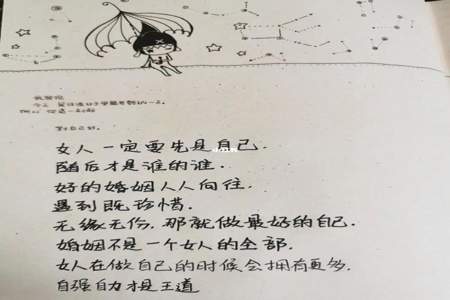 对自己好.
女人一定要先是自己.
随后才是谁的谁.
好的婚姻人人向往.
遇到既珍惜.
无缘无伤.那就做最好的自己.
婚姻不是一个女人的全部.
女人在做自己的时候会拥有更多.
自强自力才是王道